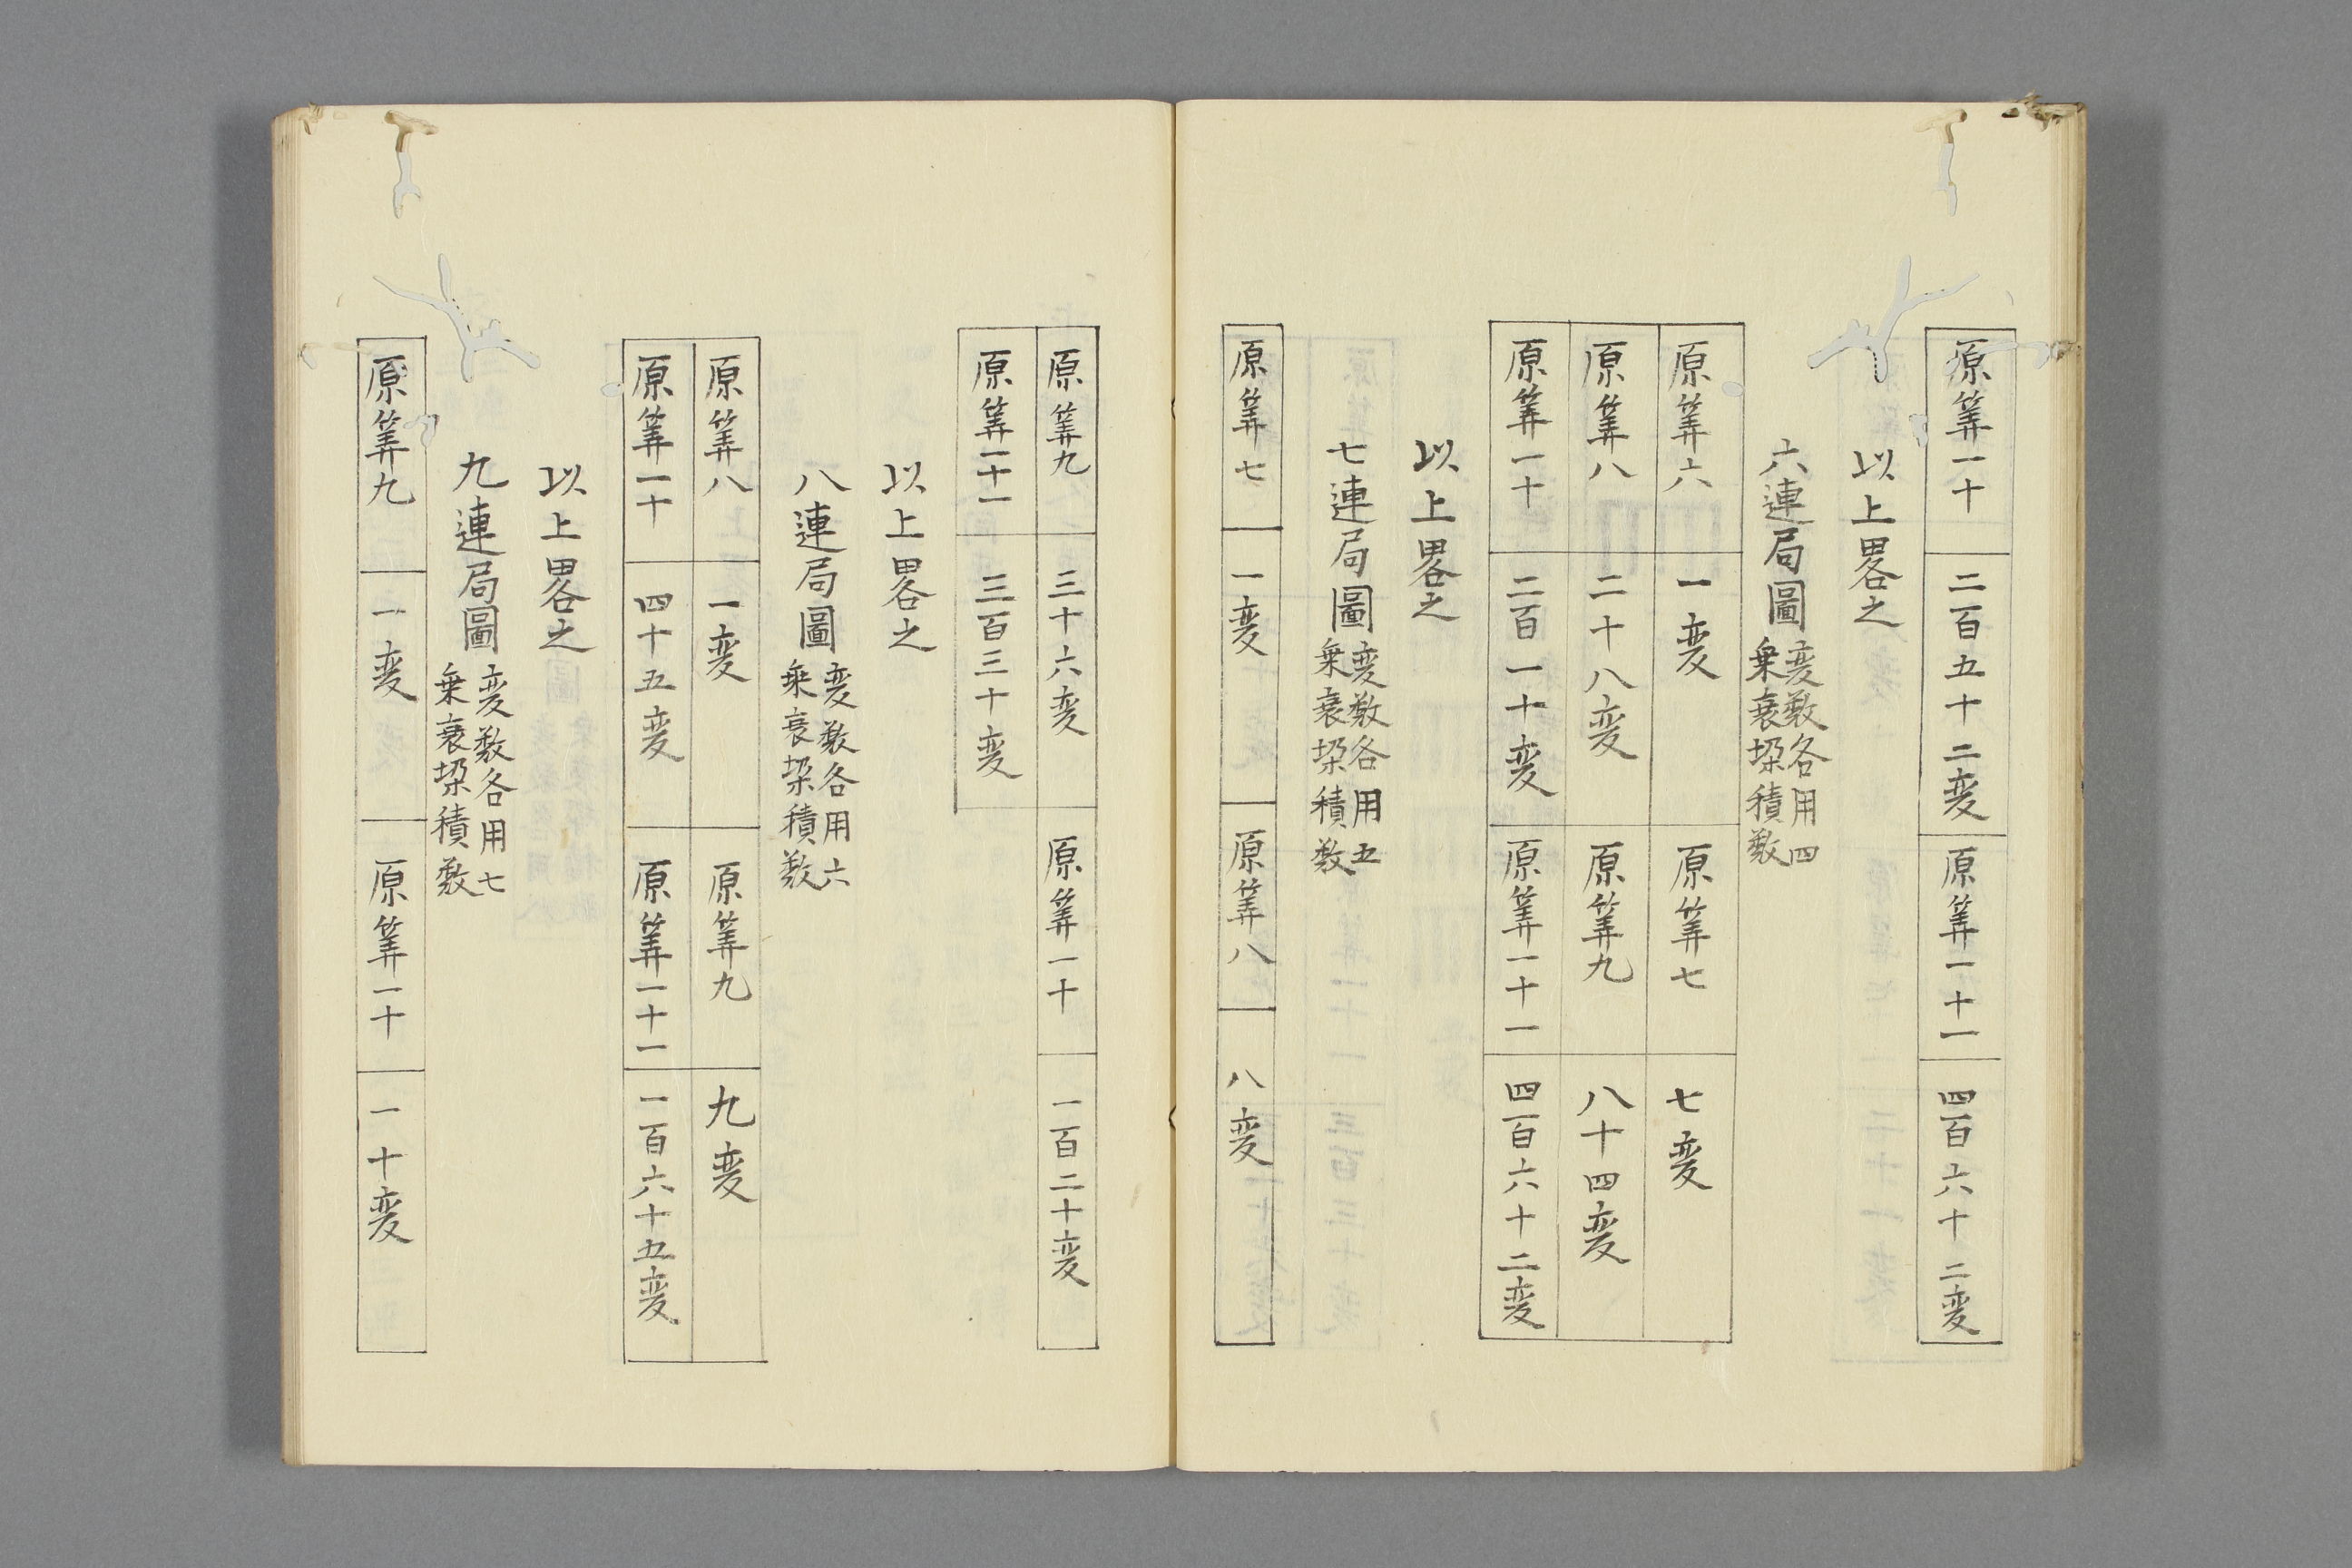 原筭一十 二百五十二変 原筭一十一 四百六十二変
以上畧之
六連局圖 変数各用四
乗衰垜積数
原筭六 一変 原筭七 七変
原筭八 二十八変 原筭九 八十四変
原筭一十 二百一十変 原筭一十一 四百六十二変
以上畧之
七連局圖 変数各用五
乗衰垜積数
原筭七 一変 原筭八 八変
原筭九 三十六変 原筭一十 一百二十変
原筭一十一 三百三十変
以上畧之
八連局圖 変数各用六
乗衰垜積数
原筭八 一変 原筭九 九変
原筭一十 四十五変 原筭一十一 一百六十五変
以上畧之
九連局圖 変数各用七
乗衰垜積数
原筭九 一変 原筭一十 一十変